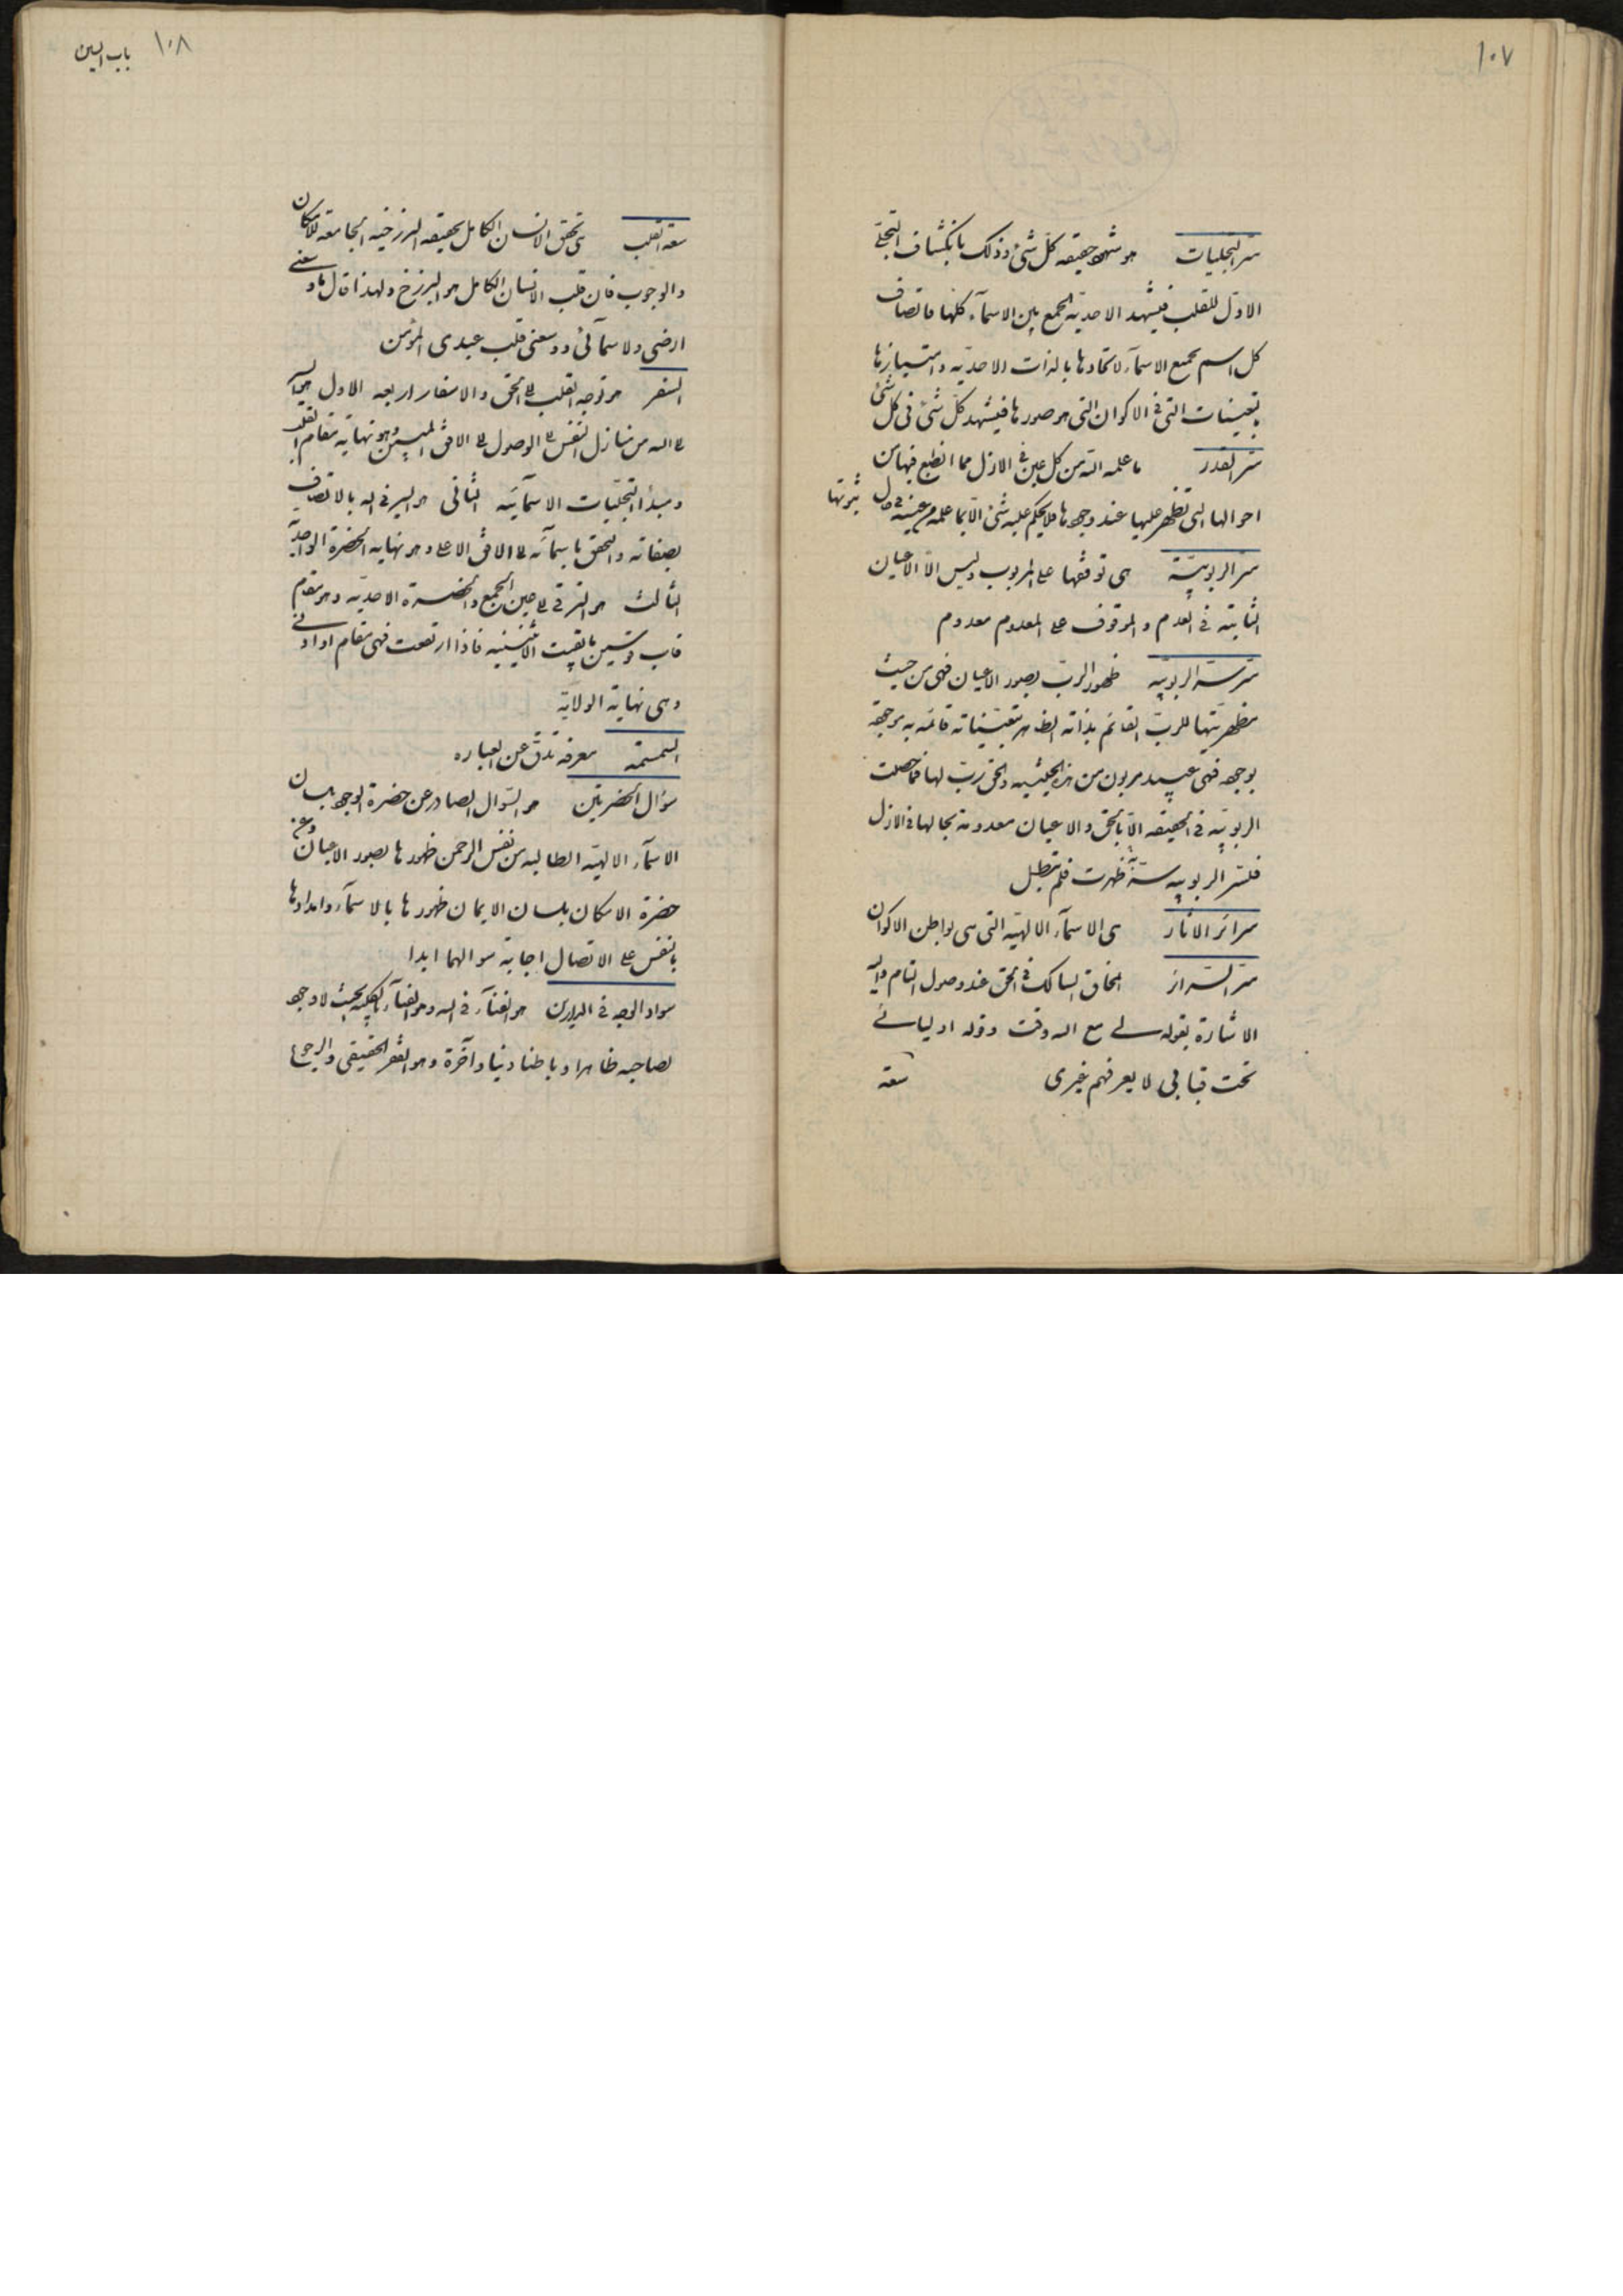 ١٠٧
سر التجليات هو شهود حقيقة كل شئ وذلك بانكشاف التجلى
الاول للقلب فيشهد الاحدية الجمع بين الاسمآء كلها فاتصاف
كل اسم بجميع الاسمآء لاتحادها بالذات الاحدية وامتيازها
بتعينات التى فى الاكوان التى هو صورها فيشهد كل شئ فى كل شئ
سر القدر ما علمه الله من كل عين فى الازل مما انطبع فيها من
احوالها التى تظهر عليها عند وجودها فلا يحكم عليه شئ الا بما علمه من عينه فى حال ثبوتها
سر الربوبية هى توقفها على المربوب وليس الا الاعيان
الثابتة فى العدم والموقوف على المعدوم معدوم
سر سر الربوبية ظهور الرب بصور الاعيان فهى من حيث
مظهريتها للرب القائم بذاته الظاهر بتعيناته قائمة به موجودة
بوجوده فهى عبيد مربوبون من هذه الحيثية والحق رب لها فما حصلت
الربوبية فى الحقيقة الا بالحق والاعيان معدومة بحالها فى الازل
فلسر الربوبية سر به ظهرت فلم تبطل
سرائر الاثار هى الاسمآء الالهية التى هى بواطن الاكوان
سر السرائر انمحاق السالك فى الحق عند وصول التام واليه
الاشارة بقوله لى مع الله وقت وقوله اوليائى
تحت قبابى لا يعرفهم غيرى
سعة
١٠٨ باب السين
سعة القلب هى تحقق الانسان الكامل بحقيقة البرزخية الجامعة للامكان
والوجوب فان قلب الانسان الكامل هو البرزخ ولهذا قال ما وسعنى
ارضى ولا سمآئى ووسعنى قلب عبدى المؤمن
السفر هو توجه القلب الى الحق والاسفار اربعة الاول هو السير
الى الله من منازل النفس الى الوصول الى الافق المبين وهو نهاية مقام القلب
ومبدأ التجليات الاسمآئية الثانى هو السير فى الله بالاتصاف
بصفاته والتحقق باسمآئه الى الافق الاعلى وهو نهاية الحضرة الواحدية
الثالث هو الترقى الى عين الجمع والحضرة الاحدية وهو مقام
قاب قوسين ما بقيت الاثنينية فاذا ارتفعت فهى مقام او ادنى
وهى نهاية الولاية
السمسمة معرفة تدق عن العبارة
سؤال الحضرتين هو السؤال الصادر عن حضرة الوجوب بلسان
الاسمآء الالهية الطالبة من نفس الرحمن ظهورها بصور الاعيان وعن
حضرة الامكان بلسان الايمان ظهورها بالاسمآء وامدادها
بالنفس على الاتصال اجابة سوالهما ابدا
سواد الوجه فى الدارين هو الفنآء فى الله وهو الفنآء بالكلية بحيث لا وجود
لصاحبه ظاهرا وباطنا دنيا وآخرة وهو الفقر الحقيقى والرجوع